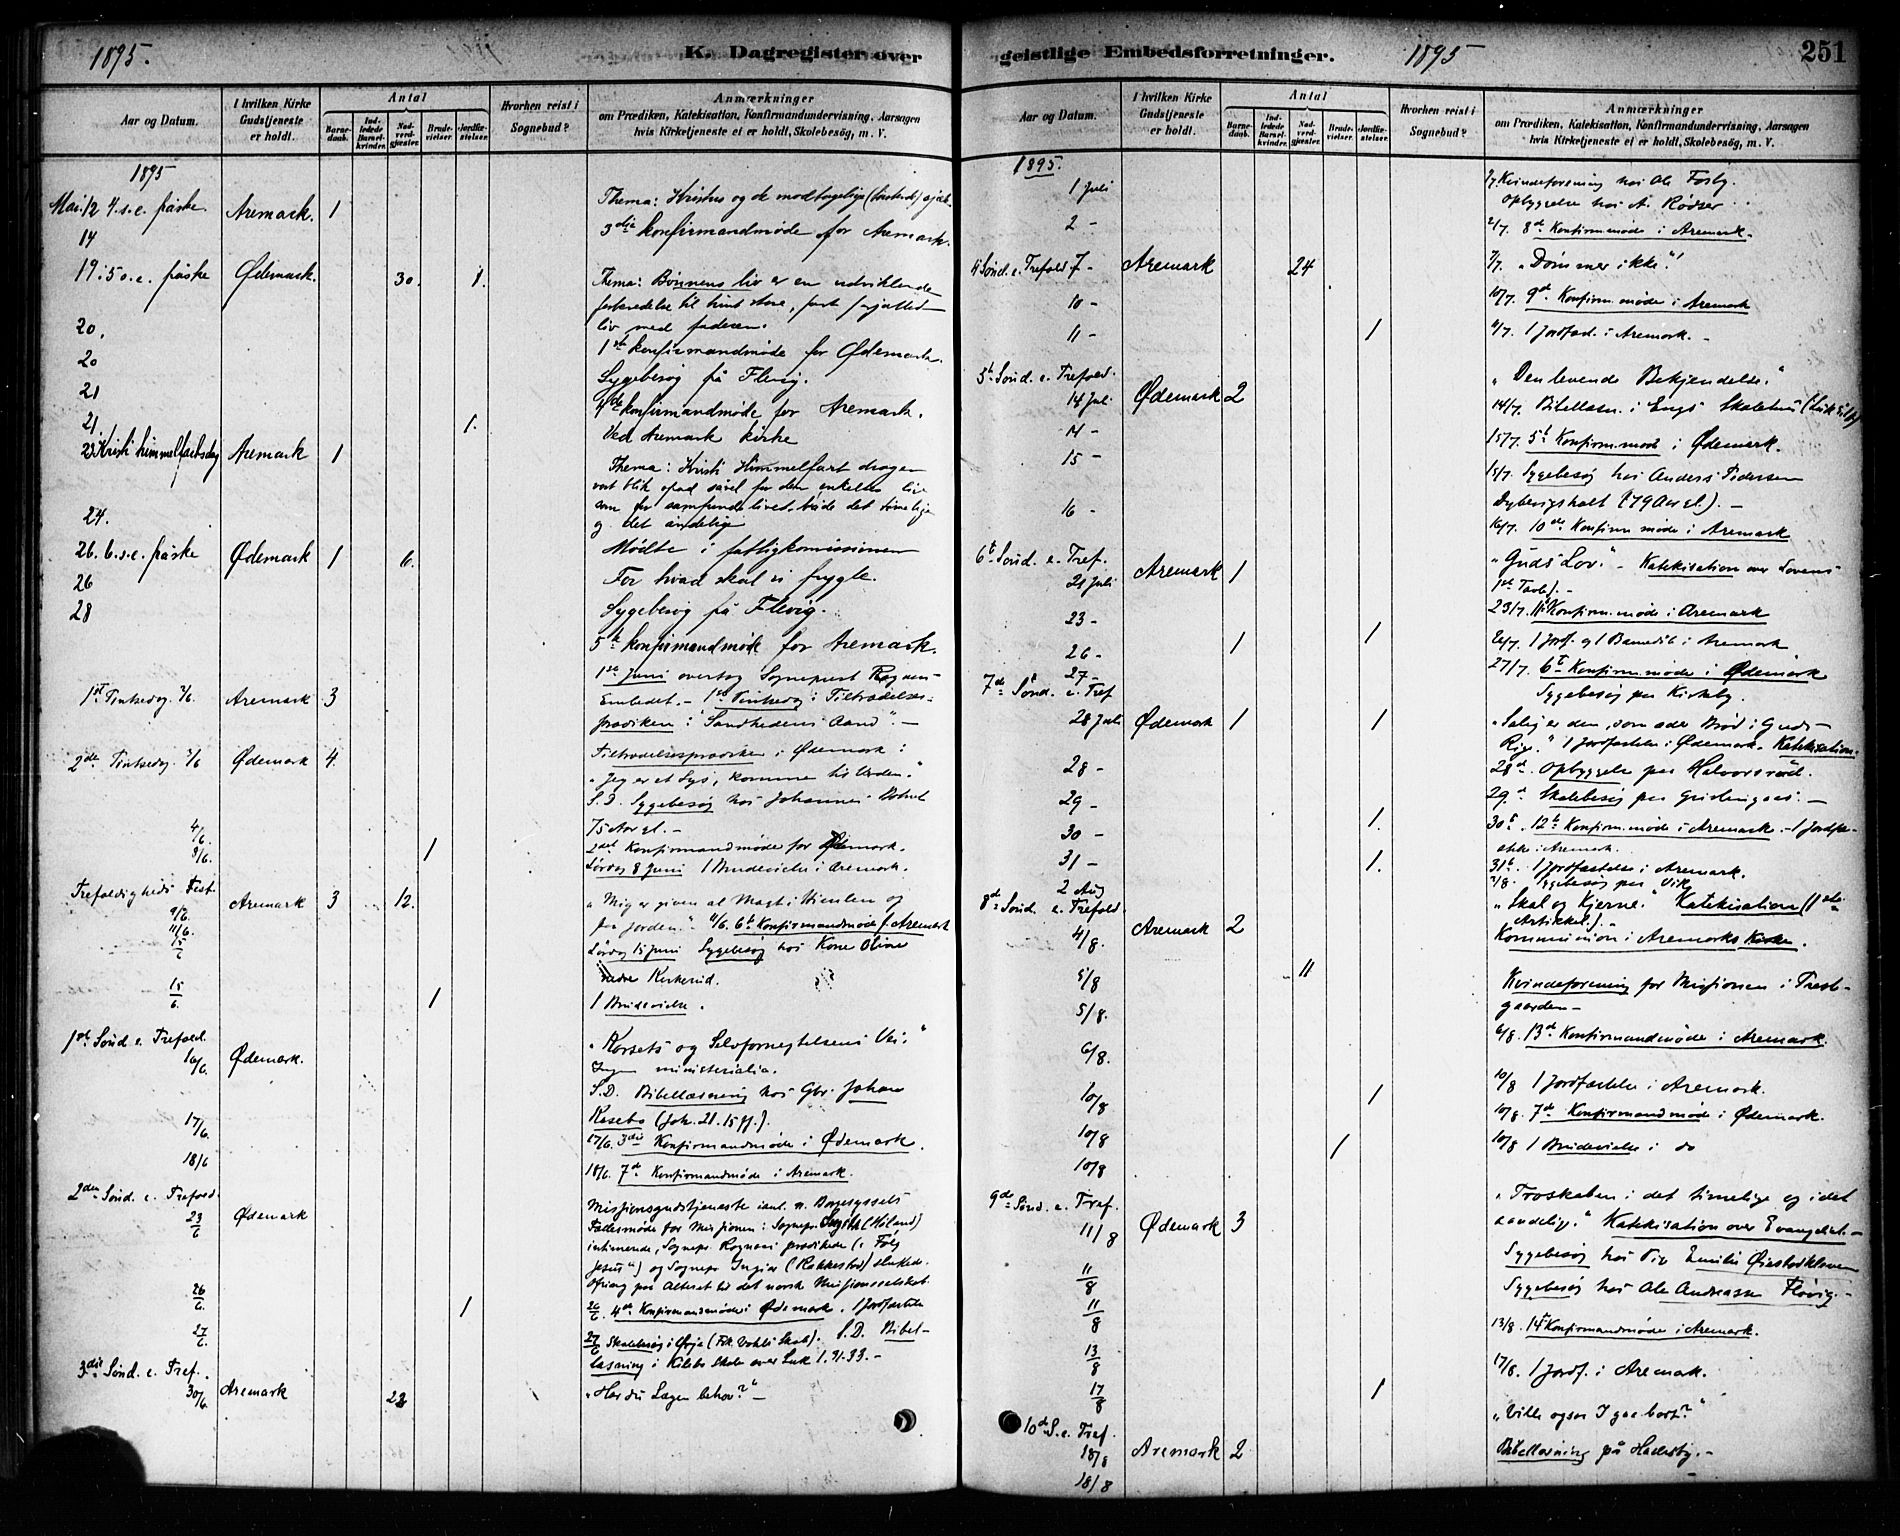 1895.
K. Dagregister over
Aar og Datum.
I hvilken Kirke Gudstjeneste er holdt.
Antal
Barnedaab.
Indledede Barselkvinder.
Nadverdgjæster.
Brudevielser.
Jordfæstelser.
Hvorhen reist i Sognebud?
Anmærkninger
om Prædiken, Katekisation, Konfirmandundervisning, Aarsagen
hvis Kirketjeneste ei er holdt, Skolebesög, m. V.
1895
Mai. 12 4. s. e. påske Aremark. 1 Thema: Kristus og de modtagelige
14 3die konfirmandmøde for Aremark.
19: 5 s. e. påske Ødemark. 30. 1. Thema: Bønnens liv er en udviklende
forberedelse til hint store,
liv med faderen.
20. 1ste konfirmandmøde for Ødemark.
20 Sygebesøg på Flevig.
21 4de konfirmandmøde for Aremark.
21 1. Ved Aremark kirke
23 Kristi himmelfartsdag Aremark 1 Thema: Kristi Himmelfart drager
vort blik opad såvel for den enkeltes liv
som for samfundslivet, både det timelige
og det åndelige
24. Mødte i fattigkomissionen
26. 6. s. e. påske Ødemark 1 6. For hvad skal vi frygte.
26 Sygebesøg på Flevig.
28 5te konfirmandmøde for Aremark.
1ste Juni overtog Sogneprest Rognan
Embedet. - 1ste Pintsedag: Tiltrædelses-
prædiken: "Sandhedens Aand". -
1st Pintsedag 2/6. Aremark 3
2den Pintsedag 3/6 Ødemark 4. Tiltrædelsesprædiken i Ødemark:
"Jeg er et Lys, kommen til Verden."
S. D. Sygebesøg hos Johannes
75 Aar gl. -
4/6. 2det Konfirmandmøde for Ødemark.
8/6. 1 Lørdag 8 Juni 1 Brudevielse i Aremark.
Trefoldigheds Fest. 9/6. Aremark 3 12. "Mig er given al Magt i Himlen og
11/6. paa Jorden." 11/6. 6te Konfirmandmøde f. Aremark
15/6 Lørdag 15 Juni Sygebesøg hos Kone Oline
nedre Kirkerud.
15/6. 1 1 Brudevielse.
1ste Sönd. e. Trefold. 16/6. Ødemark. "Korsets og Selvfornegtelsens Vei."
Ingen ministerialia.
S. D. Bibellæsning hos Gbr. Johan
Kasebo (Joh. 21. 15 ff.).
17/6. 17/6. 3die Konfirmandmøde i Ødemark.
18/6 18/6. 7de Konfirmandmøde i Aremark.
2den Sönd. e. Trefold. 23/6 Ødemark Missjonsgudstjeneste
Fællesmøde for Missjonen: Sognepr. (Høland)
intimerede, Sognepr. Rognan prædikede (: Følg
Jesus") og Sognepr. Ingier (Rakkestad)
Ofring paa Alteret til det norsk Missjonsselskab.
26/6. 1 26/6 4de Konfirmandmøde i Ødemark. 1 Jordfæstelse
27/6. 27/6 Skolebesøg i Ørje. S. D. Bibel-
læsning i Kilebo Skole over Luk 1. 31-33. -
3die Sönd. e. Tref. 30/6. Aremark 22 "Har du Lægen behov?" -
geistlige Embedsforretninger. 1895 251
Aar og Datum.
I hvilken Kirke Gudstjeneste er holdt.
Antal
Barnedaab.
Indledede Barselkvinder.
Nadverdgjæster.
Brudevielser.
Jordfæstelser.
Hvorhen reist i Sognebud?
Anmærkninger
om Prædiken, Katekisation, Konfirmandundervisning, Aarsagen
hvis Kirketjeneste ei er holdt, Skolebesög, m. V.
1895.
1 Juli 1/7 Kvindeforening hos Ole Fosby.
Opbyggelse hos A. Rødser
2 - 2/7. 8de Konfirm.møde i Aremark.
4 Sönd. e. Trefold 7 - Aremark 24 7/7. "Dømmer ikke."
10 - 10/7. 9de Konfirm.møde i Aremark
11 - 1 11/7. 1 Jordfæst. i Aremark. -
5te Sönd. e. Trefold. 14 Juli Ødemark 2 "Den levende Bekjendelse."
14 - 14/7. Bibellæsn. i Engs Skolehus
15 - 15/7. 5te Konfirm.møde i Ødemark.
15/7. Sygebesøg hos Anders Pedersen
(79 Aar gl.). -
16 - 16/7. 10de Konfirm.møde i Aremark
6te Sönd. e. Tref. 21 Juli Aremark 1 "Guds Lov." - Katekisation over Lovens
1ste Tavle). -
23 - 23/7. 11te Konfirm.møde i Aremark
26 - 1 1 26/7. 1 Jordf. og 1 Barnedåb i Aremark
27 - 27/7. 6te Konfirm.møde i Ødemark
Sygebesøg paa Kirkeby.
7de Sönd. e. Tref 28 Juli Ødemark 1 1 "Salig er den, som æder Brød i Guds
Rige." 1 Jordfæstelse i Ødemark. Katekisation.
28 - 28de. Opbyggelse paa Halvorsrød.
29 - 29de Skolebesøg paa
30 - 1. 30te. 12te Konfirm.møde i Aremark. - 1 Jordfæ-
stelse i Aremark.
31 - 1. 31te. 1 Jordfæstelse i Aremark.
2 Aug 2/8. Sygebesøg paa Vik
8de Sönd. e. Trefold. 4/8. Aremark 2 "Skal og Kjerne." Katekisation (1ste
Artikkel). -
Kommunion i Aremarks Kirke.
5/8 11
5/8. Kvindeforening for Missjonen i Prest-
gaarden -
6/8. 6/8. 13de Konfirmandmøde i Aremark.
10/8 1 10/8 1 Jordfæstelse i Aremark.
10/8 10/8. 7de Konfirmandmøde i Ødemark.
10/8 1 10/8 1 Brudevielse i do
9de Sönd. e. Tref. 11/8 Ødemark 3 "Troskaben i det timelige og i det
aandelige." Katekisation over Evangeliet. -
11/8 Sygebesøg hos Pige Emilie
11/8 Sygebesøg hos Ole Andreassen Fløvig. -
13/8 13/8. 14de Konfirmandmøde i Aremark.
17/8 1 17/8. 1 Jordf. i Aremark.
10de S. e. Tref. 18/8 Aremark 2 "Ville ogsaa I gaa bort?"
18/8 Bibellæsning på